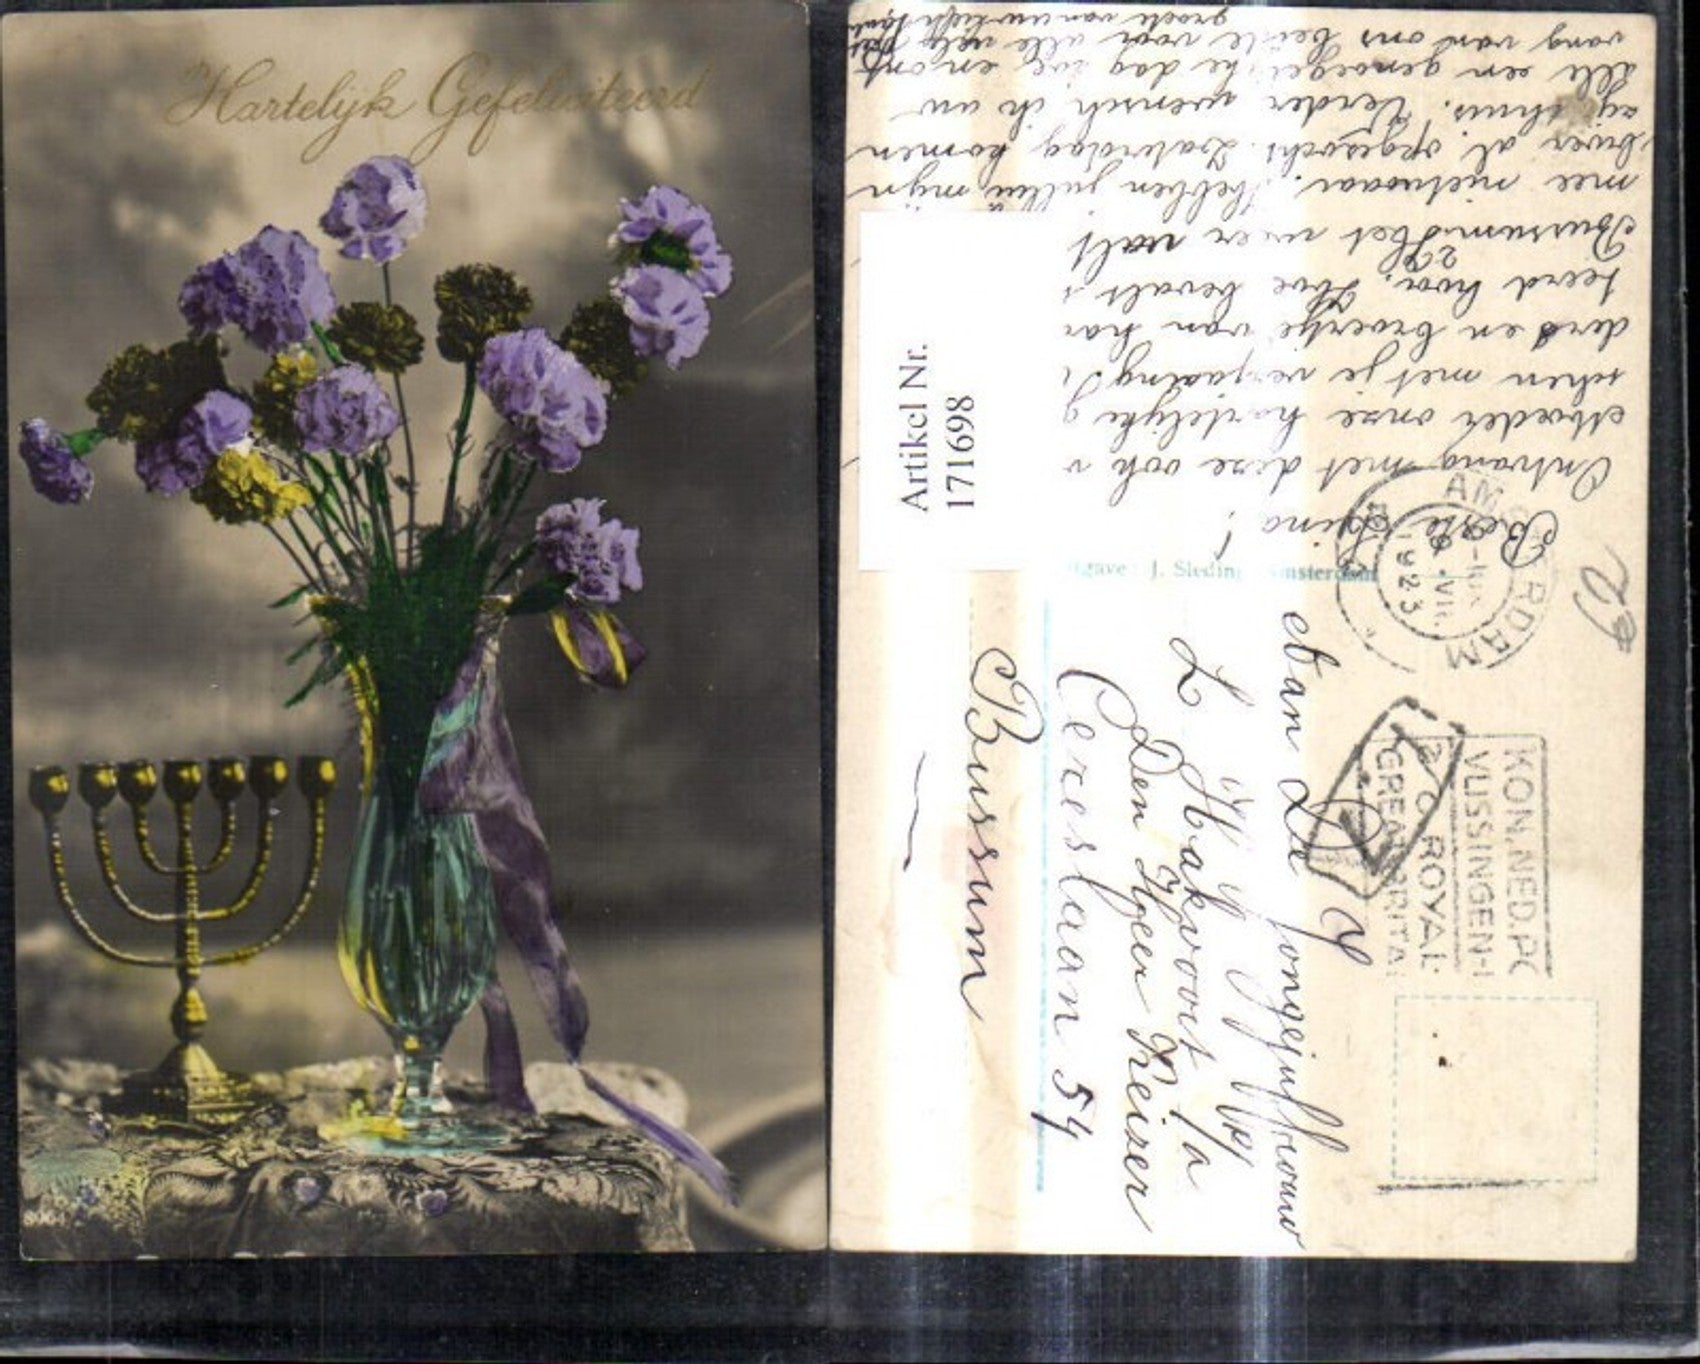 Hartelijk Gefeliciteerd
8064
Artikel Nr.
171698
Beste
Ontvang met deze ook
Moeder onze hartelijke
schen met je verjaardag
ders en broertje van har
teerd hoor. Hoe bevalt
Bussum? Het weer valt
mee nietwaar. Hebben jullie mijn
al opgezocht. Zaterdag komen
zij thuis. Verder wensch ik uw
alle een genoegelijke dag toe en ont
vang van ons beide voor alle
groeten van
J. Sleding Amsterdam
AMSTERDAM
VII.
1923
KON. NED. PO
VLISSINGEN-
ROYAL
GREAT BRITAI
Aan De Jongejuffrouw
Hakvoort p/a
Den Heer Keizer
Cereslaan 54
Bussum